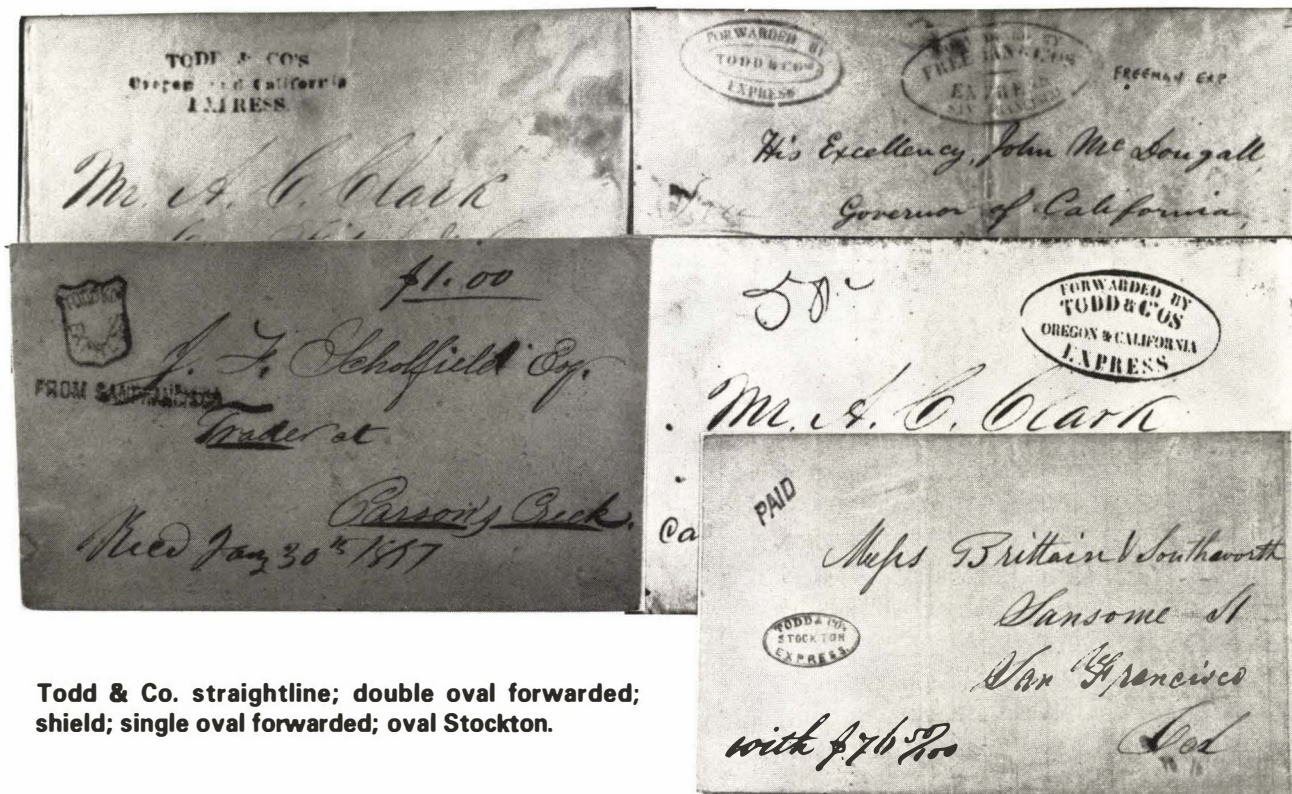 TODD & CO'S
Oregon and California
EXPRESS.
Mr. A. C. Clark
FORWARDED BY
TODD & CO'S
EXPRESS
FREEMAN & CO'S
EXPRESS
SAN FRANCISCO
FREEMAN EXP
His Excellency, John McDougall,
Governor of California,
$1.00
TODD & Co
FROM SAN FRANCISCO
J. F. Scholfield Esq.
Trader at
Carson's Creek.
Recd Jany 30th
50
FORWARDED BY
TODD & C'OS
OREGON & CALIFORNIA
EXPRESS
Mr. A. C. Clark
Ca
PAID
Messs Brittain & Southworth
TODD & CO'S
STOCKTON
EXPRESS.
Sansome St
San Francisco
Cal
with $76 50/100
Todd & Co. straightline; double oval forwarded;
shield; single oval forwarded; oval Stockton.